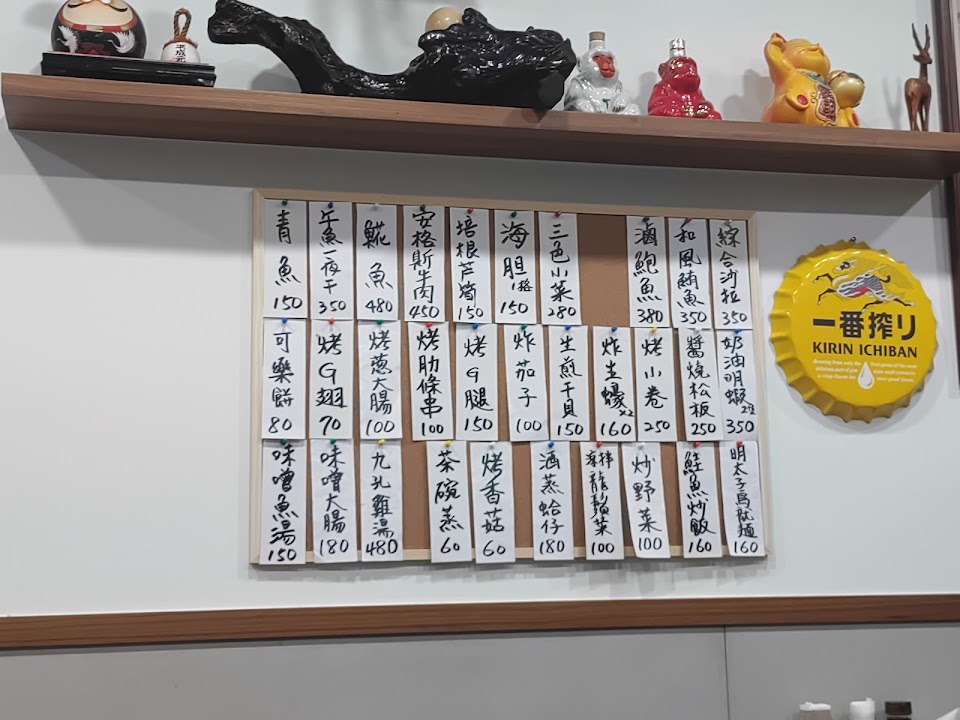 平成元
青魚 150
午魚一夜干 350
鯤魚 480
安格斯牛肉 450
培根芦筍 150
海胆 1格 150
三色小菜 280
滷鮑魚 380
和風鮪魚 350
綜合沙拉 350
可樂餅 80
烤G翅 70
烤蔥大腸 100
烤肋條串 100
烤G腿 150
炸茄子 100
生煎干貝 150
炸生蠔 x2 160
烤小卷 250
醬燒松板 250
奶油明蝦 2隻 350
味噌魚湯 150
味噌大腸 180
九孔雞湯 480
茶碗蒸 60
烤香菇 60
酒蒸蛤仔 180
涼拌龍鬚菜 100
炒野菜 100
鮭魚炒飯 160
明太子烏龍麵 160
一番搾り
KIRIN ICHIBAN